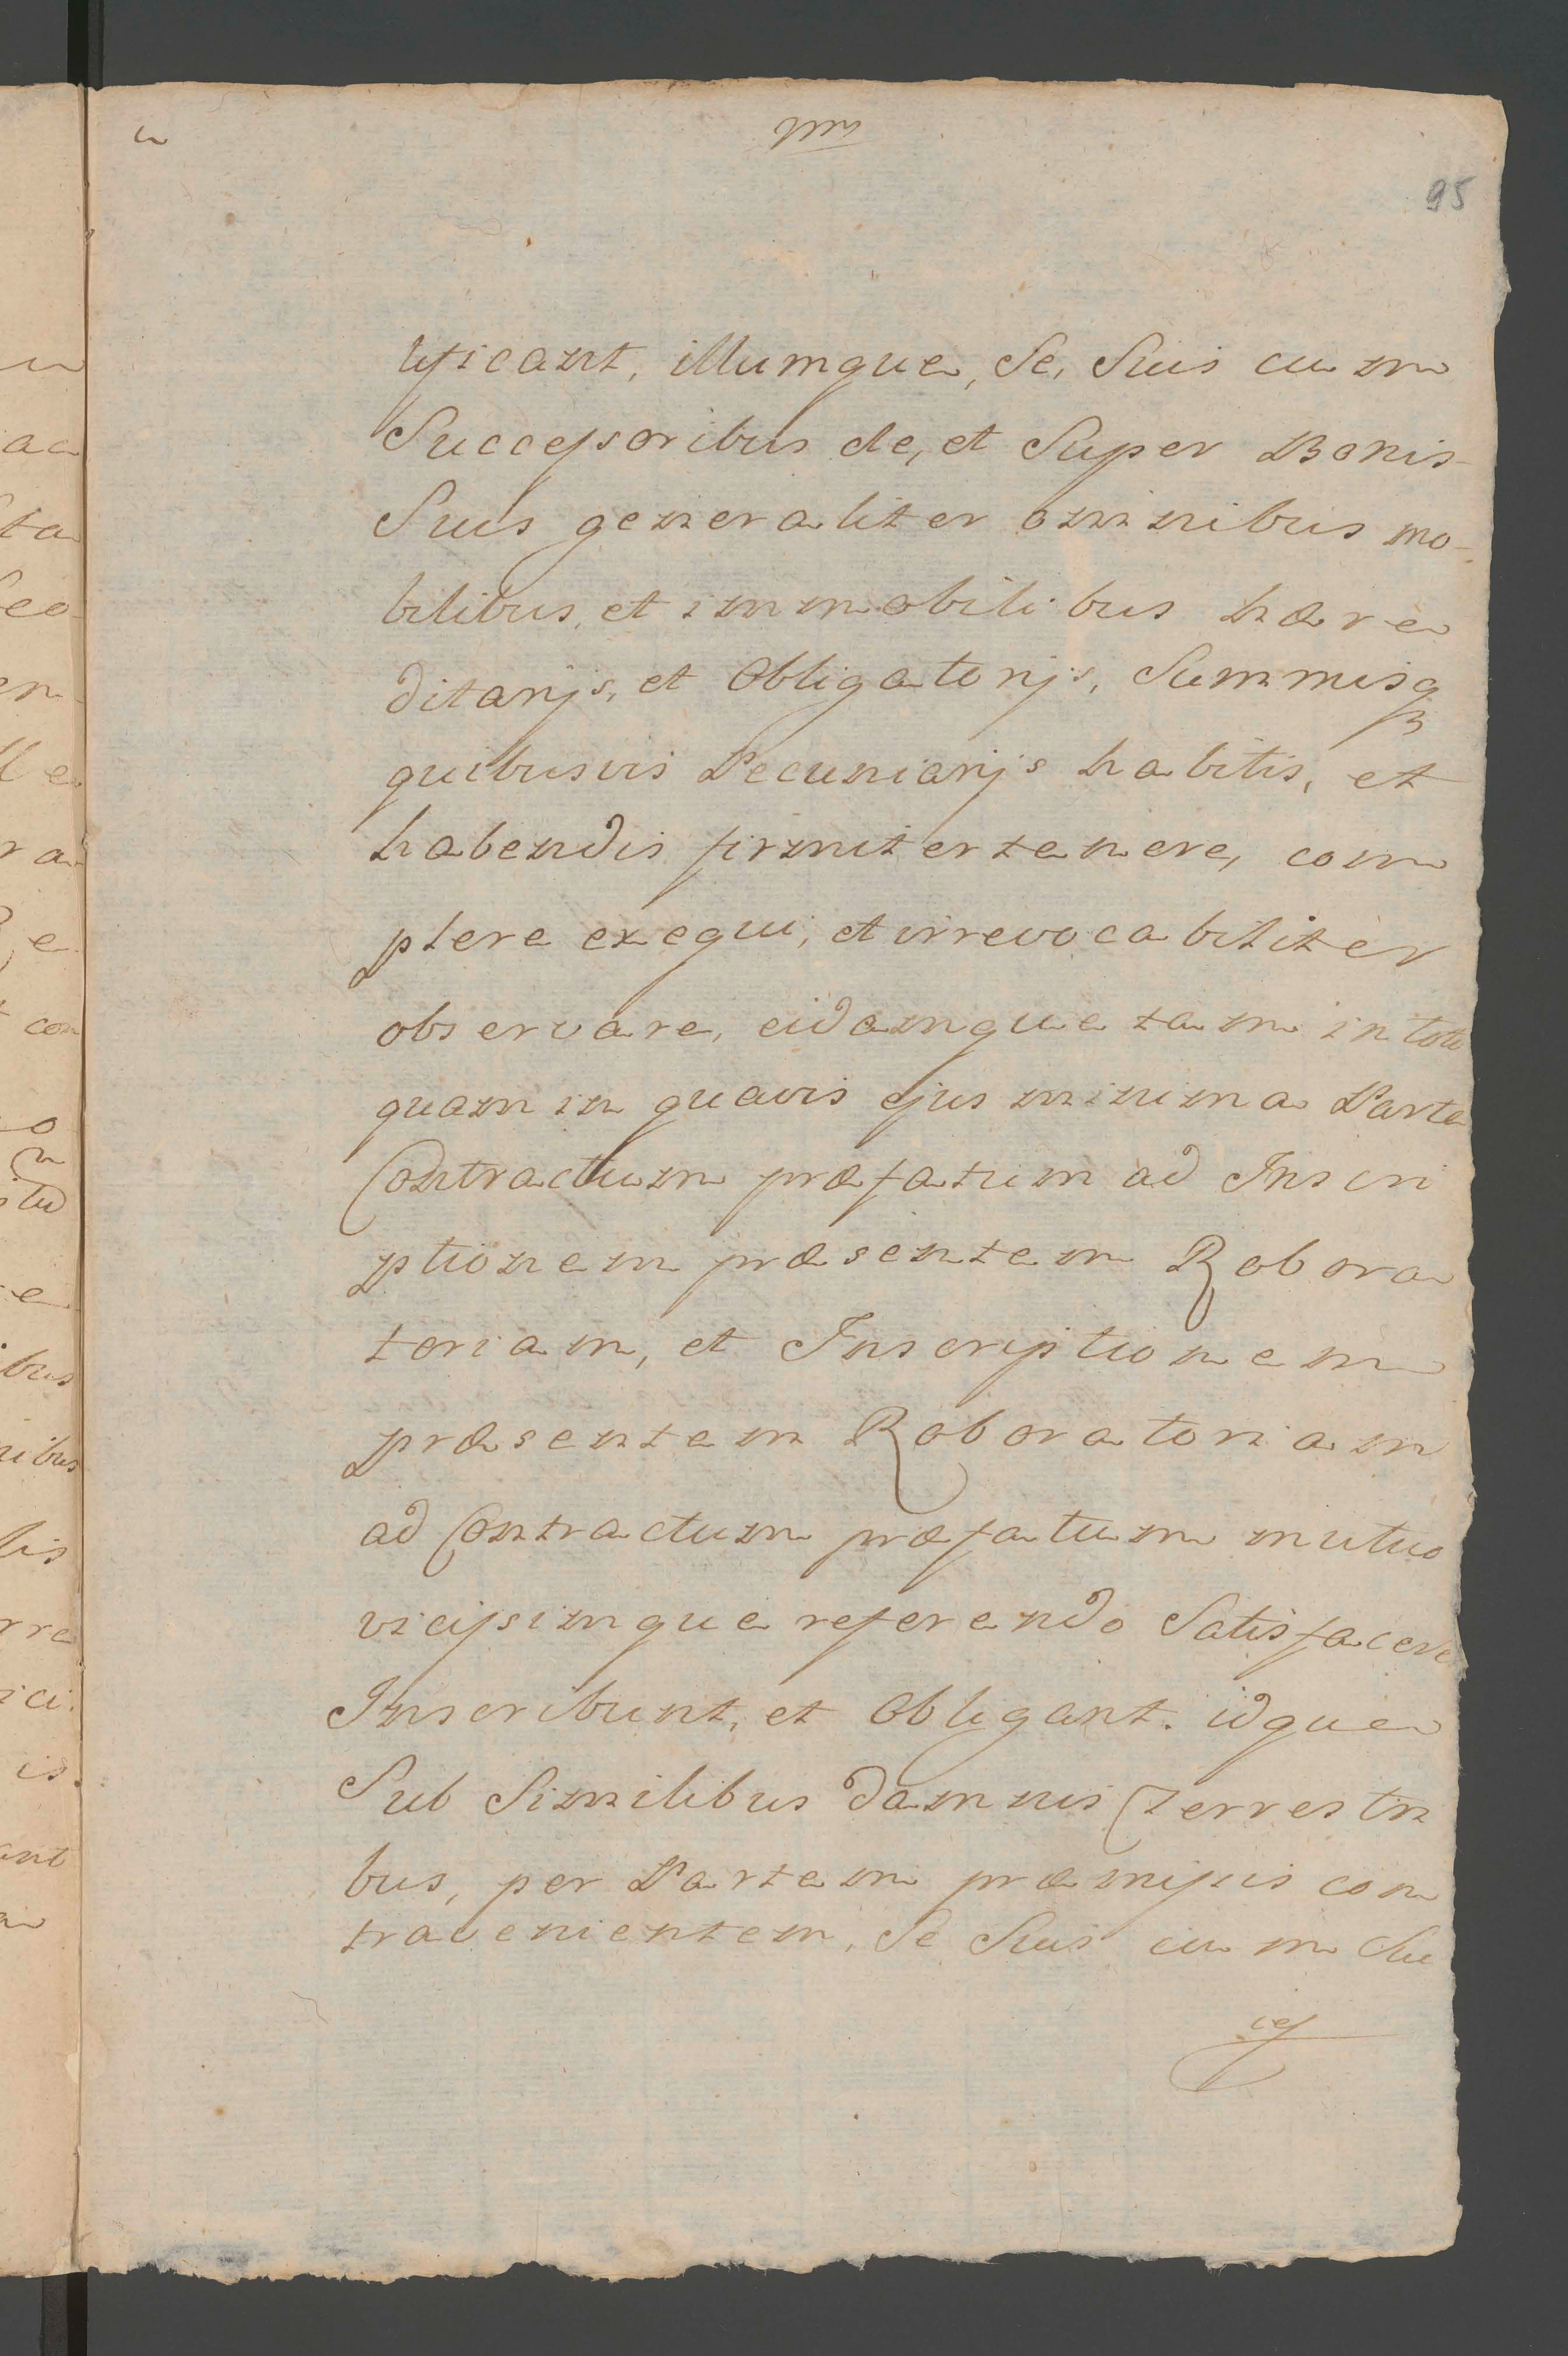 95
tificant, illumque, Se, Suis cum
Successoribus de, et Super Bonis
Suis generaliter omnibus mo-
bilibus, et immobilibus hære
ditarijs, et Obligatorijs, Summisq
quibusvis Pecuniarijs habitis, et
habendis firmiter tenere, com
plere exequi, et irrevocabiliter
observare, eidamque tam in toto
quam in quavis ejus minima Parte
Contractum præfatum ad Inscri
ptionem præsentem Robora
toriam, et Inscriptionem
præsentem Roboratoriam
ad Contractum præfatum mutuo
vicissimque referendo Satisfacere
Inscribunt, et Obligant. idque
Sub Similibus damnis Terrestri
bus, per Partem præmissis con
travenientem, Se Suis cum Su
ces